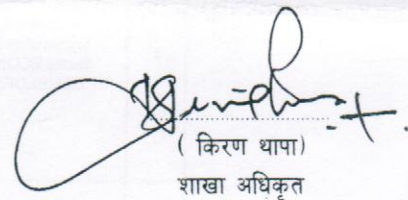 ( किरण थापा)
शाखा अधिकृत